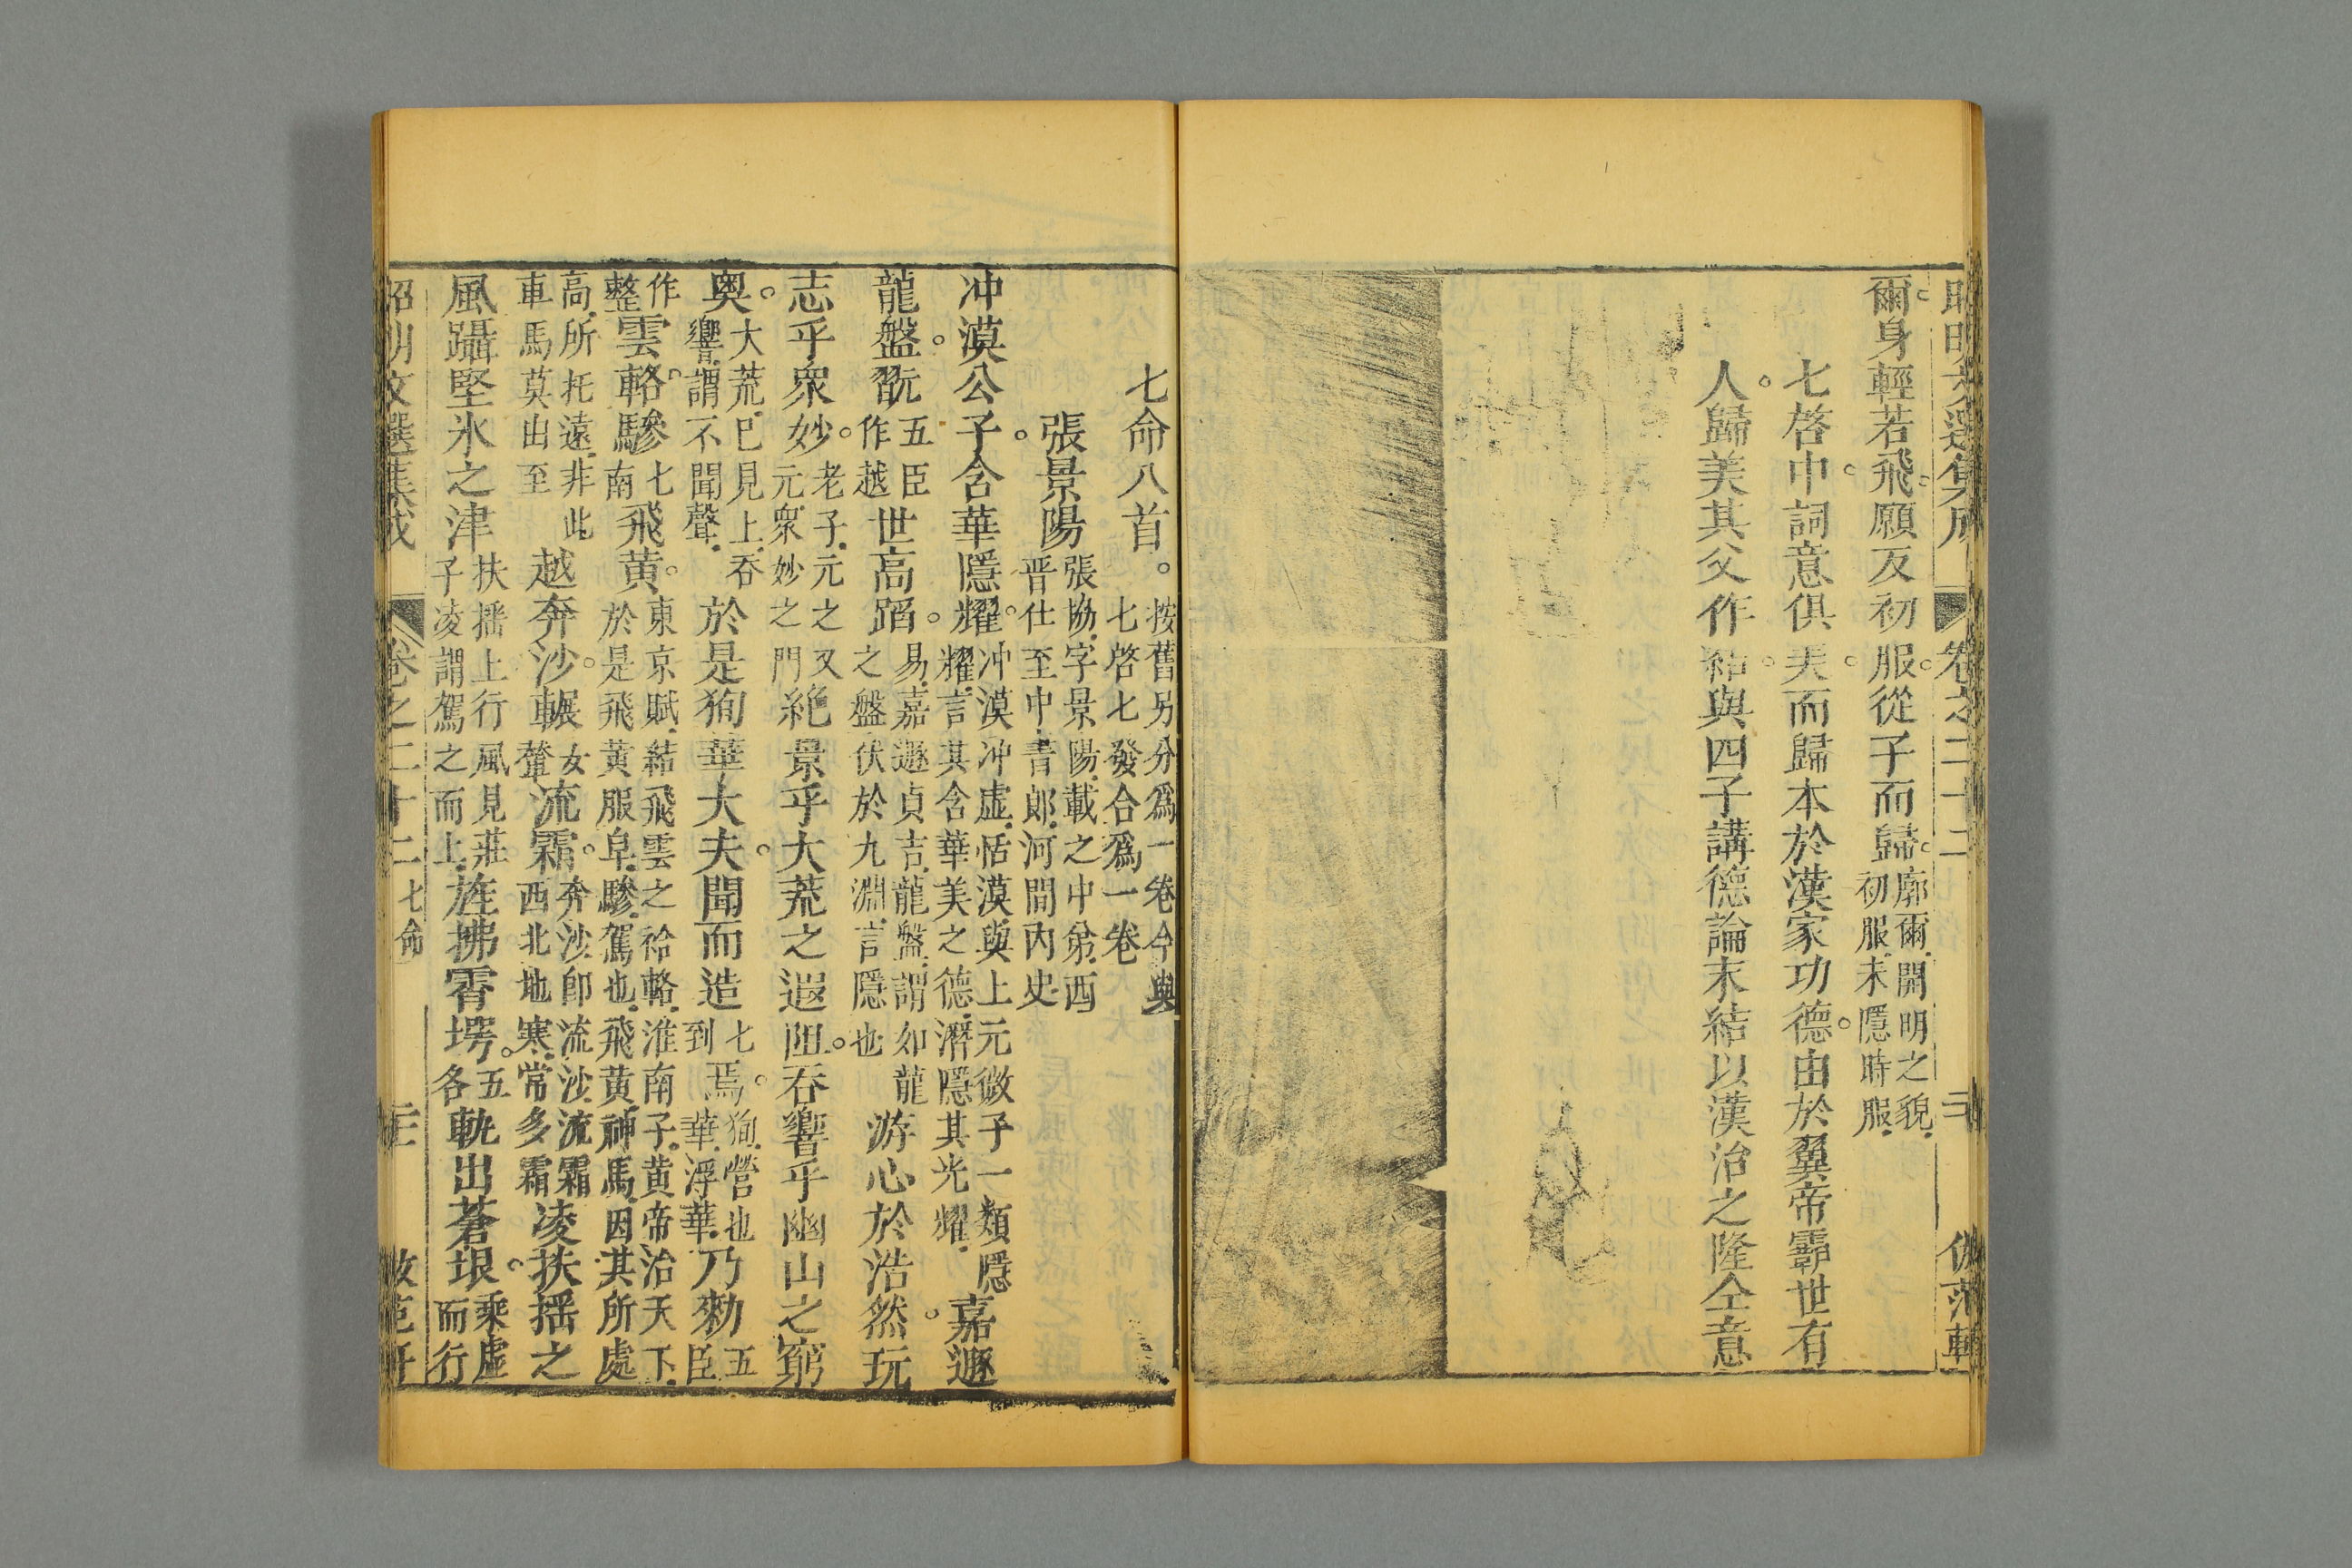 昭明文選集成 卷之二十二
爾身輕若飛願反初服從子而歸廓爾開明之貌初服未隱時服
七啓中詞意俱美而歸本於漢家功德由於翼帝霸世有
人歸美其父作結與四子講德論末結以漢治之隆仝意
七命八首。按舊另分爲一卷今與七啓七發合爲一卷
張景陽張協字景陽載之中弟西晋仕至中書郎河間内史
冲漠公子含華隱耀冲漠冲虚恬漠與上元微子一類隱耀言其含華美之德濳隱其光耀嘉遯
龍盤翫五臣作越世高蹈易嘉遯貞吉龍盤謂如龍之盤伏於九淵言隱也游心於浩然玩
志乎衆妙老子元之又元衆妙之門絶景乎大荒之遐阻吞響乎幽山之窮
奥大荒已見上吞響謂不聞聲於是狥華大夫聞而造七到焉狥營也華浮華乃勑五臣
作整雲輅驂七南飛黄東京賦結飛雲之袷輅淮南子黄帝治天下於是飛黄服皁驂駕也飛黄神馬因其所處
高所托遠非此車馬莫出至越奔沙輾女輦流霜奔沙卽流沙流霜西北地寒常多霜凌扶揺之
風躡堅氷之津扶揺上行風見莊子凌謂駕之而上旌拂霄堮五各軌出蒼垠乘虚而行
昭明文選集成 卷之二十二 七命